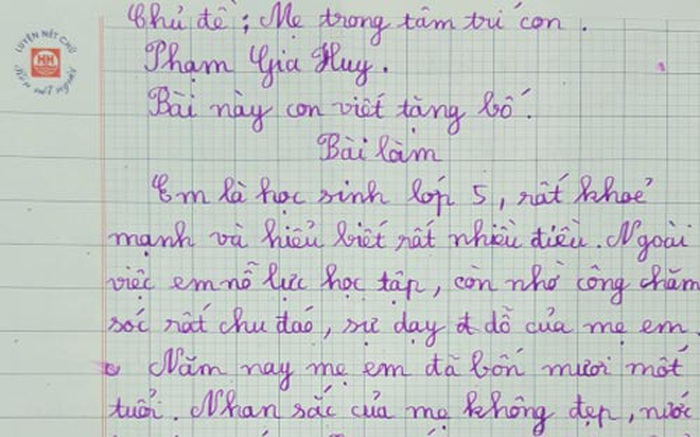 Chủ đề : Mẹ trong tâm trí con .
LUYỆN NÉT CHỮ
HH
Rèn nết người
Phạm Gia Huy .
Bài này con viết tặng bố .
Bài làm
Em là học sinh lớp 5 , rất khoẻ
mạnh và hiểu biết rất nhiều điều . Ngoài
việc em nỗ lực học tập , còn nhờ công chăm
sóc rất chu đáo , sự dạy dỗ của mẹ em .
Năm nay mẹ em đã bốn mươi mốt
tuổi . Nhan sắc của mẹ không đẹp , nước